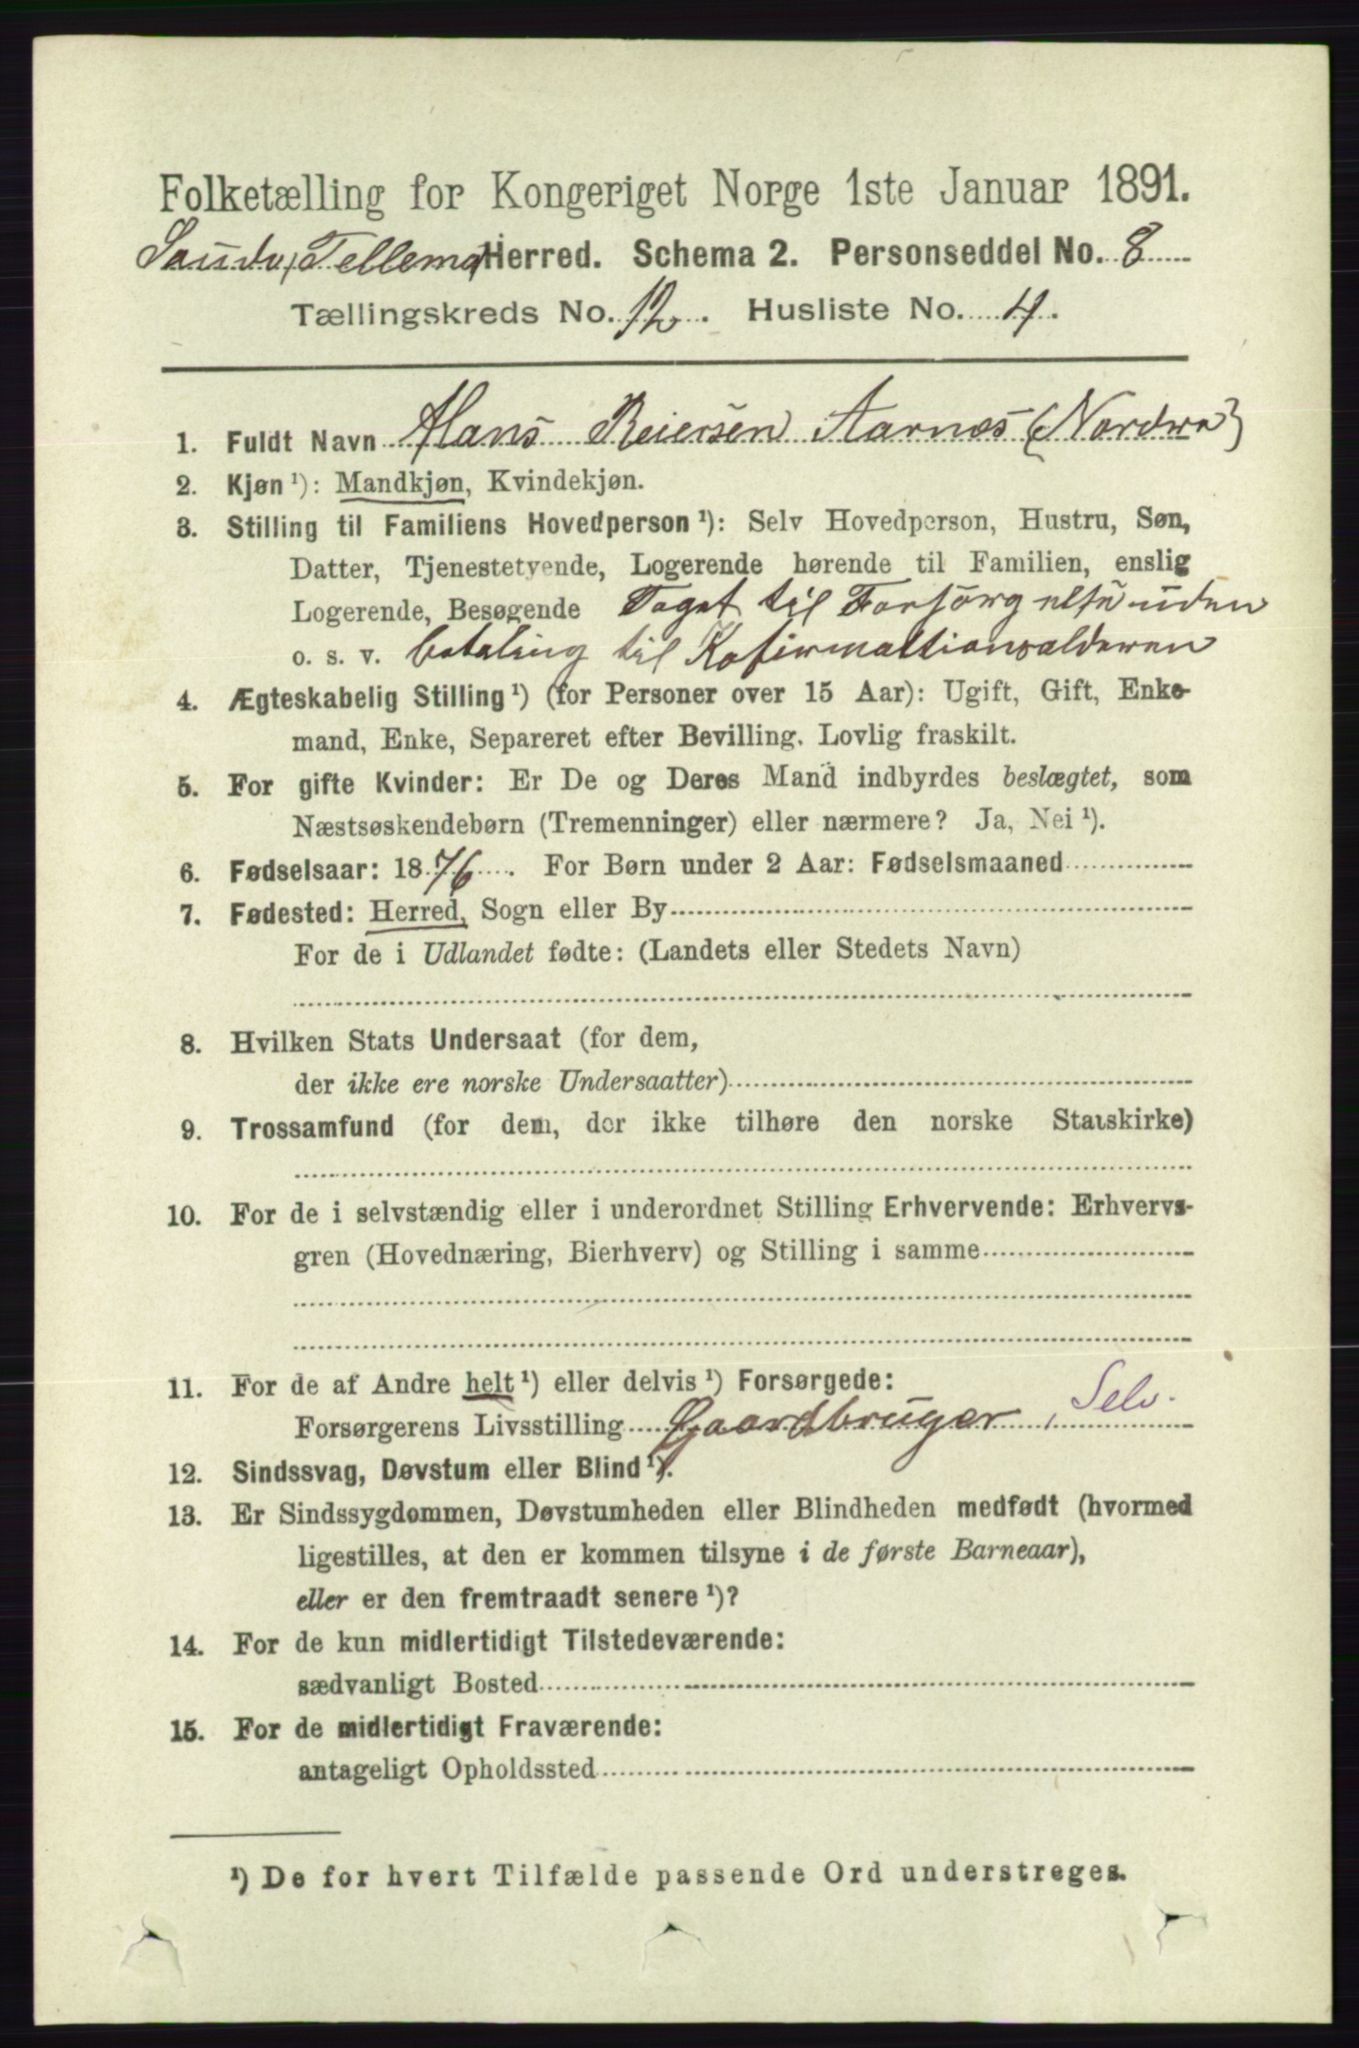 Folketælling for Kongeriget Norge 1ste Januar 1891.
Saude, Tellema Herred. Schema 2. Personseddel No. 8
Tællingskreds No. 12. Husliste No. 4.
1. Fuldt Navn Hans Reiersen Aarnes (Nordre)
2. Kjøn ¹): Mandkjøn, Kvindekjøn.
3. Stilling til Familiens Hovedperson ¹): Selv Hovedperson, Hustru, Søn,
Datter, Tjenestetyende, Logerende hørende til Familien, enslig
Logerende, Besøgende Taget til Forsørgelse uden
o. s. v. betaling til Kofirmattionsalderen
4. Ægteskabelig Stilling ¹) (for Personer over 15 Aar): Ugift, Gift, Enke-
mand, Enke, Separeret efter Bevilling. Lovlig fraskilt.
5. For gifte Kvinder: Er De og Deres Mand indbyrdes beslægtet, som
Næstsøskendebørn (Tremenninger) eller nærmere? Ja, Nei ¹).
6. Fødselsaar: 1876. For Børn under 2 Aar: Fødselsmaaned
7. Fødested: Herred, Sogn eller By
For de i Udlandet fødte: (Landets eller Stedets Navn)
8. Hvilken Stats Undersaat (for dem,
der ikke ere norske Undersaatter)
9. Trossamfund (for dem, der ikke tilhøre den norske Statskirke)
10. For de i selvstændig eller i underordnet Stilling Erhvervende: Erhvervs-
gren (Hovednæring, Bierhverv) og Stilling i samme
11. For de af Andre helt ¹) eller delvis ¹) Forsørgede:
Forsørgerens Livsstilling Gaardbruger, Selv.
12. Sindssvag, Døvstum eller Blind ¹).
13. Er Sindssygdommen, Døvstumheden eller Blindheden medfødt (hvormed
ligestilles, at den er kommen tilsyne i de første Barneaar),
eller er den fremtraadt senere ¹)?
14. For de kun midlertidigt Tilstedeværende:
sædvanligt Bosted
15. For de midlertidigt Fraværende:
antageligt Opholdssted
¹) De for hvert Tilfælde passende Ord understreges.